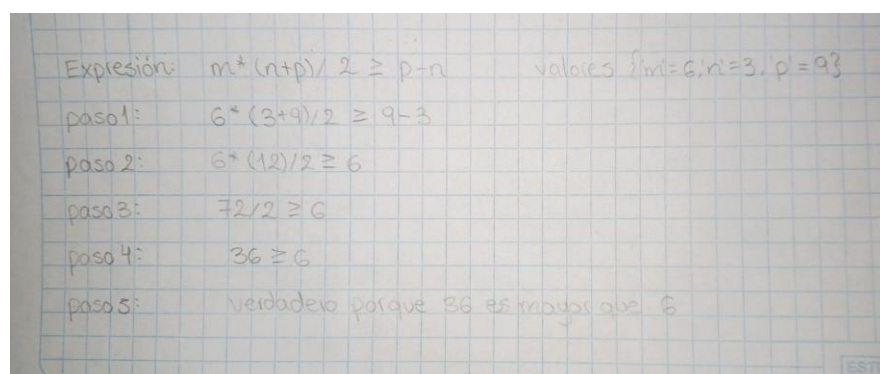 Expresión: m* (n+p)/ 2 ≥ p-n valores {'m'=6,'n'=3,'p'=9}
paso1: 6* (3+9)/2 ≥ 9-3
paso 2: 6* (12)/2 ≥ 6
paso3: 72/2 ≥ 6
paso 4: 36 ≥ 6
paso 5: verdadero porque 36 es mayor que 6